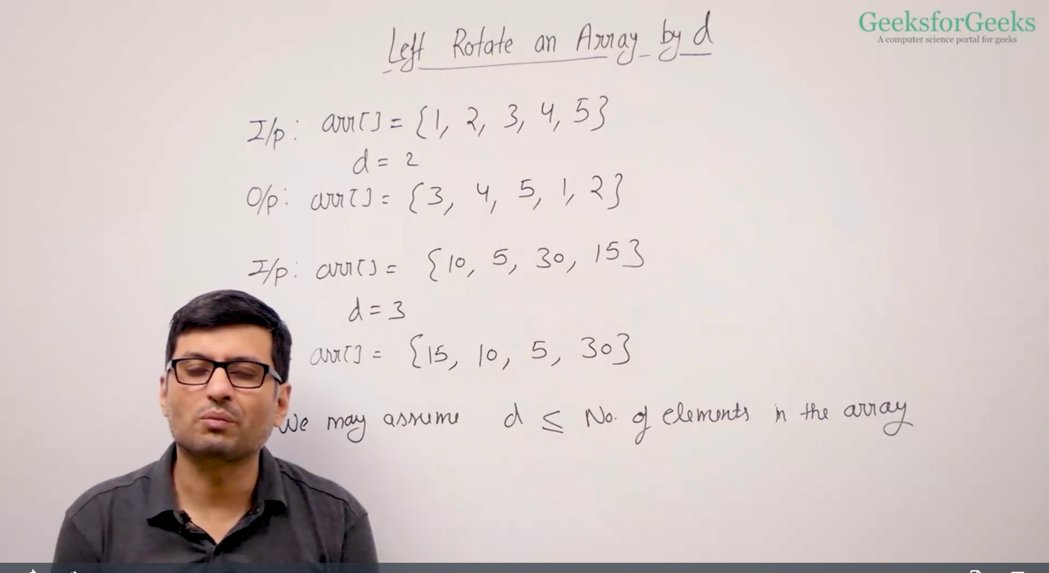 GeeksforGeeks
A computer science portal for geeks
Left Rotate an Array by d
I/p: arr[] = {1, 2, 3, 4, 5}
d = 2
O/p: arr[] = {3, 4, 5, 1, 2}
I/p: arr[] = {10, 5, 30, 15}
d = 3
arr[] = {15, 10, 5, 30}
We may assume d ≤ No. of elements in the array